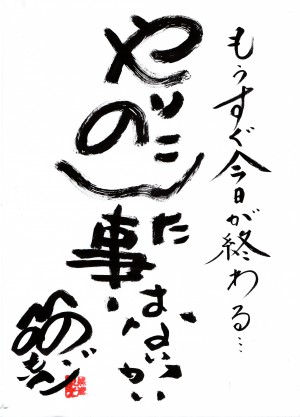 もうすぐ今日が終わる…
やりのこした
事はないかい